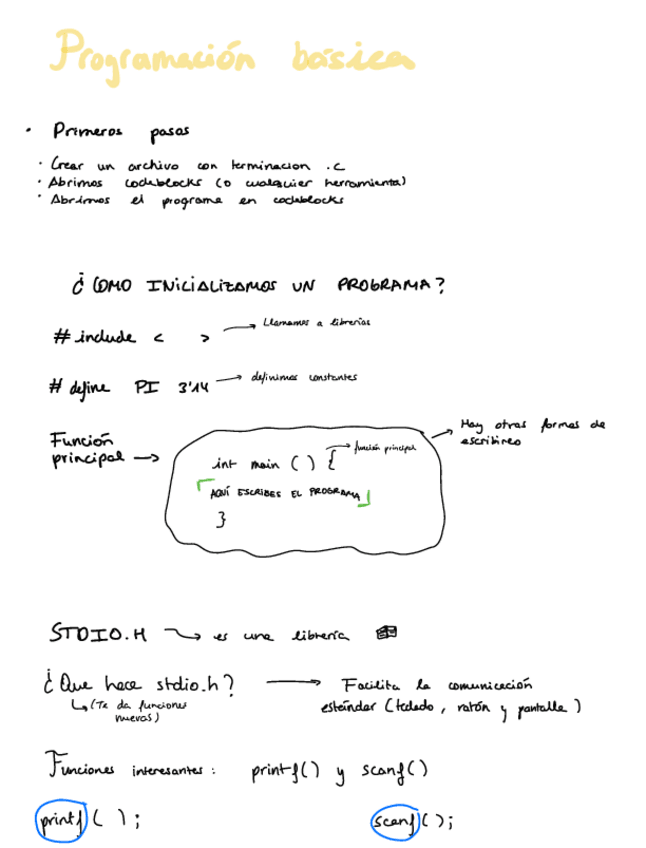 Programación básica
· Primeros pasos
· Crear un archivo con terminacion .c
· Abrimos codeblocks (o cualquier herramienta)
· Abrimos el programa en codeblocks
¿COMO INICIALIZAMOS UN PROGRAMA?
#include < > → Llamamos a librerías
# define PI 3'14 → definimos constantes
Función principal →
int main () { → función principal
AQUÍ ESCRIBES EL PROGRAMA
}
→ Hay otras formas de
escribirlo
STDIO.H → es una librería
¿Que hace stdio.h? → Facilita la comunicación
estándar (teclado, ratón y pantalla)
↳ (Te da funciones
nuevas)
Funciones interesantes: printf() y scanf()
printf ( ); scanf ();